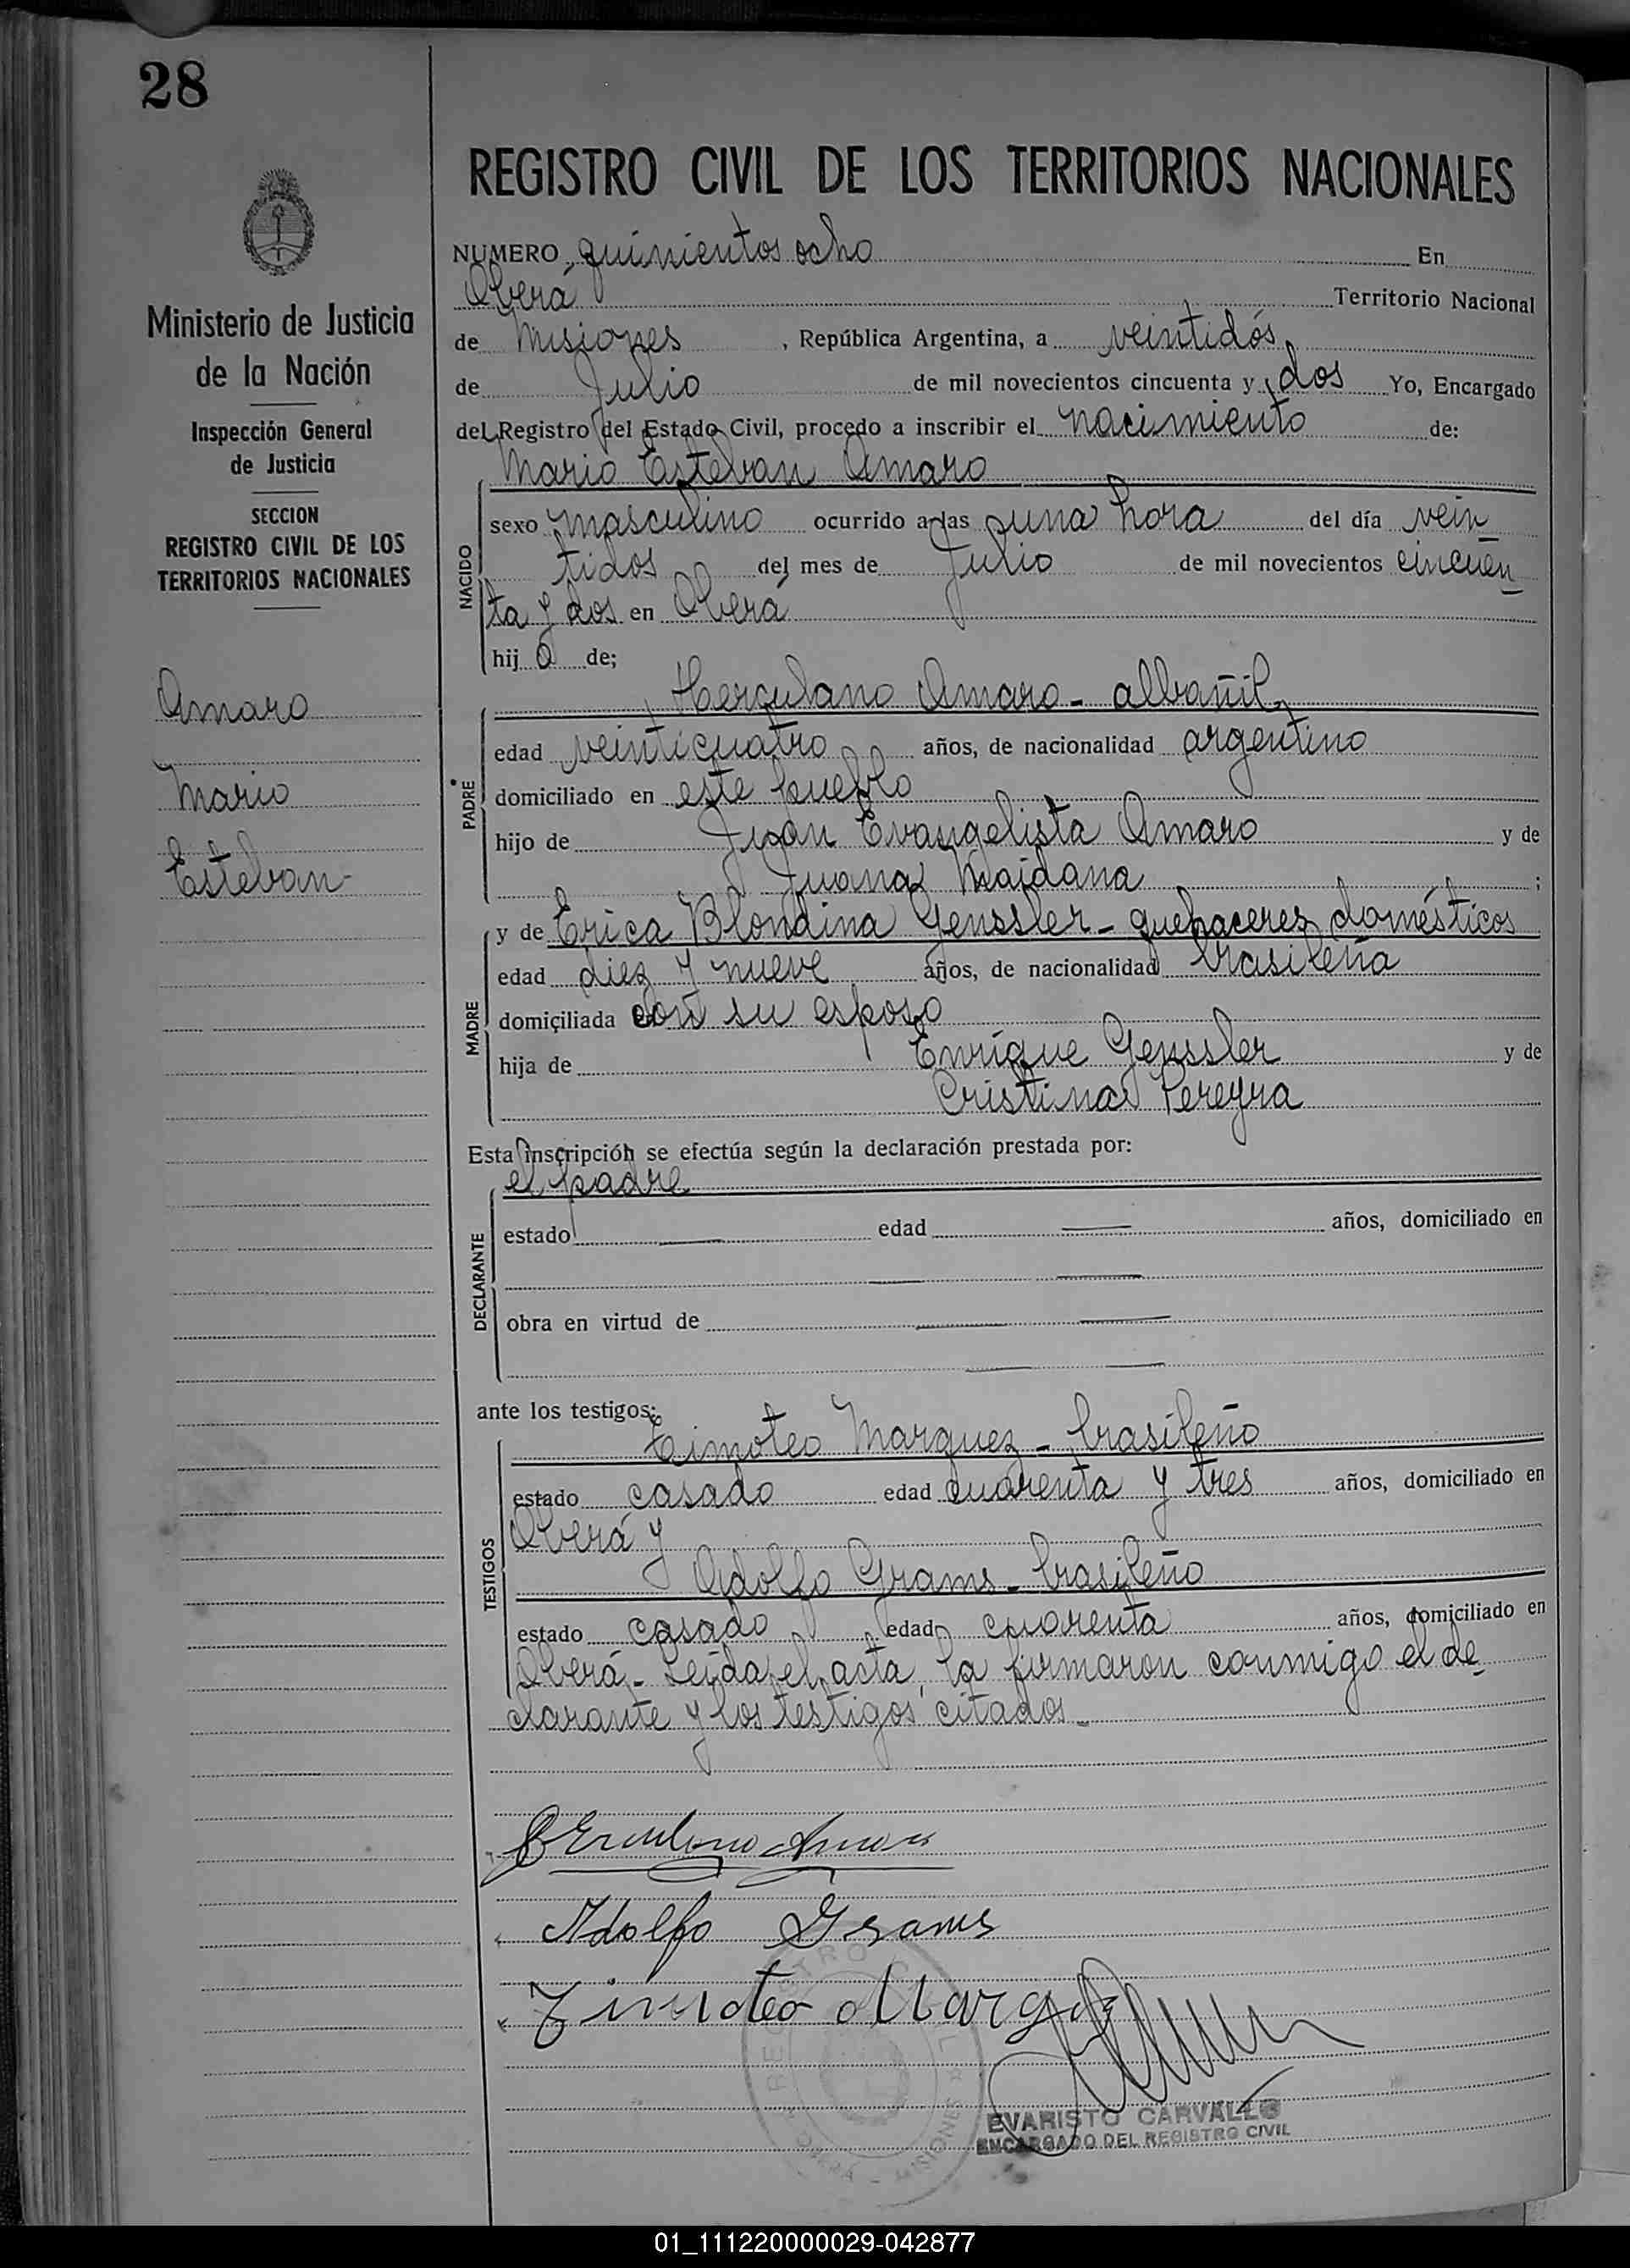 28
Ministerio de Justicia
de la Nación
Inspección General
de Justicia
SECCION
REGISTRO CIVIL DE LOS
TERRITORIOS NACIONALES
Amaro
Mario
Esteban-
REGISTRO CIVIL DE LOS TERRITORIOS NACIONALES
NUMERO quinientos ocho En
Oberá Territorio Nacional
de Misiones, República Argentina, a veintidós
de Julio de mil novecientos cincuenta y dos Yo, Encargado
del Registro del Estado Civil, procedo a inscribir el nacimiento de:
Mario Esteban Amaro
NACIDO
sexo masculino ocurrido a las una hora del día vein
tidos del mes de Julio de mil novecientos cincuen
ta y dos en Oberá
hij o de;
Herculano Amaro - albañil
PADRE
edad veinticuatro años, de nacionalidad argentino
domiciliado en este pueblo
hijo de Juan Evangelista Amaro y de
Juana Maidana ;
y de Erica Blondina Genssler - quehaceres domésticos
MADRE
edad diez y nueve años, de nacionalidad brasileña
domiciliada con su esposo
hija de Enrique Genssler y de
Cristina Pereyra
Esta inscripción se efectúa según la declaración prestada por:
el padre
DECLARANTE
estado edad años, domiciliado en
obra en virtud de
ante los testigos:
Timoteo Marquez - brasileño
TESTIGOS
estado casado edad cuarenta y tres años, domiciliado en
Oberá y
Adolfo Grams - brasileño
estado casado edad cuarenta años, domiciliado en
Oberá - Leída el acta, la firmaron conmigo el de
clarante y los testigos citados -
Adolfo Grams
Timoteo
REGISTRO CIVIL
OBERA - MISIONES
EVARISTO CARVALLO
ENCARGADO DEL REGISTRO CIVIL
01_111220000029-042877